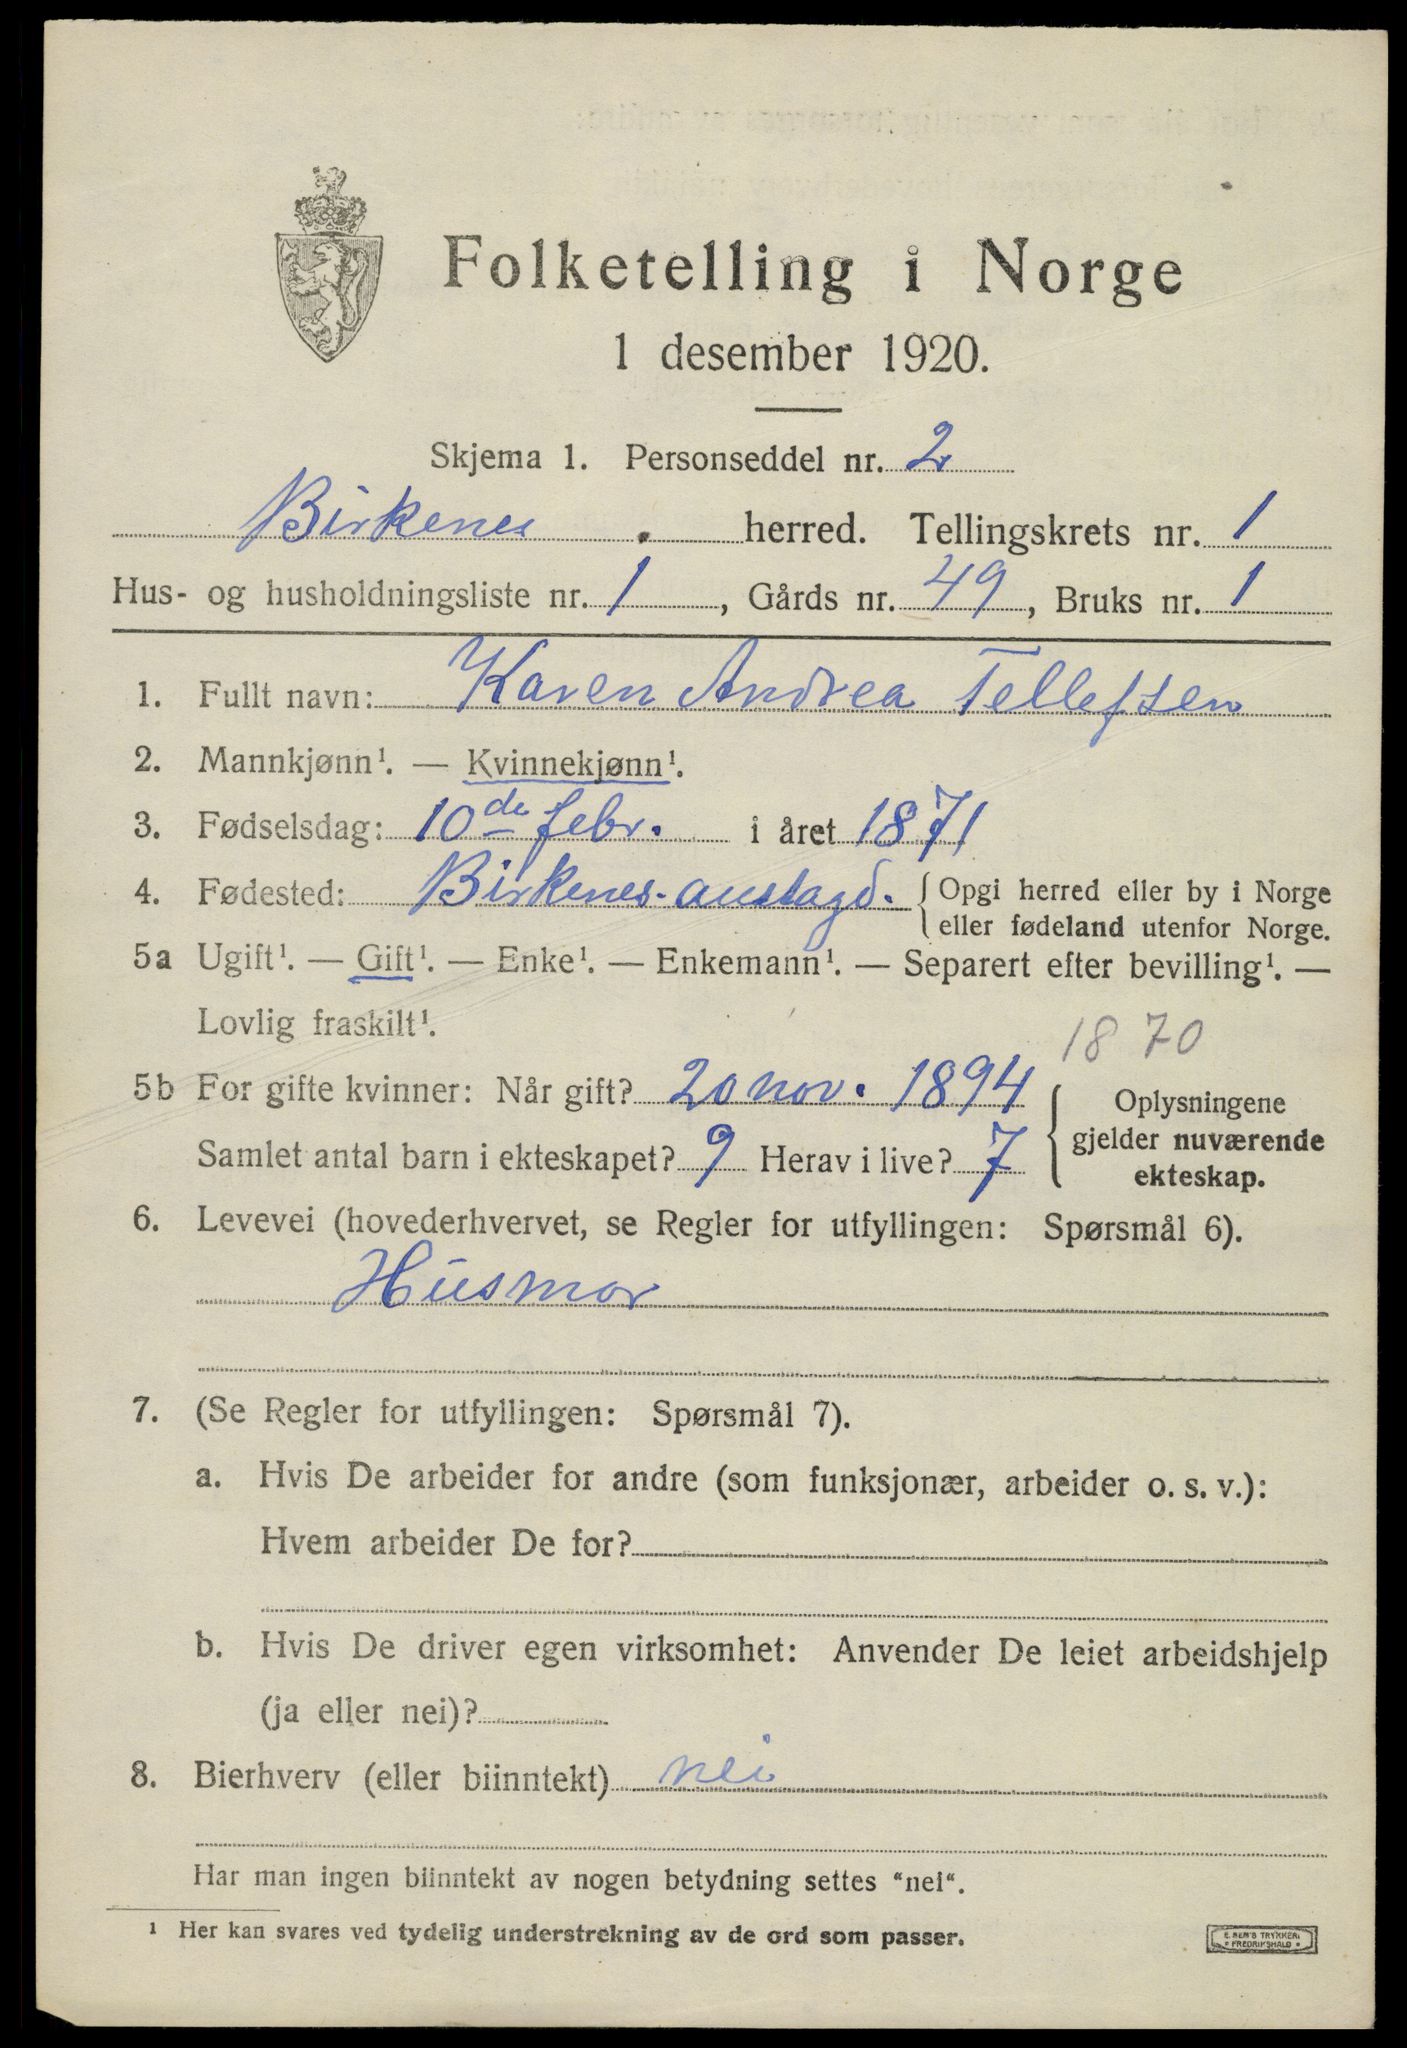 Folketelling i Norge
1 desember 1920.
Skjema 1. Personseddel nr. 2
Birkenes herred. Tellingskrets nr. 1
Hus- og husholdningsliste nr. 1, Gårds nr. 49, Bruks nr. 1
1. Fullt navn: Karen Andrea Tellefsen
2. Mannkjønn¹. — Kvinnekjønn¹.
3. Fødselsdag: 10de febr. i året 1871
4. Fødested: Birkenes. austagd. { Opgi herred eller by i Norge
eller fødeland utenfor Norge.
5a Ugift¹. — Gift¹. — Enke¹. — Enkemann¹. — Separert efter bevilling¹. —
Lovlig fraskilt¹.
1870
5b For gifte kvinner: Når gift? 20 nov. 1894
Samlet antal barn i ekteskapet? 9 Herav i live? 7
Oplysningene
gjelder nuværende
ekteskap.
6. Levevei (hovederhvervet, se Regler for utfyllingen: Spørsmål 6).
Husmor
7. (Se Regler for utfyllingen: Spørsmål 7).
a. Hvis De arbeider for andre (som funksjonær, arbeider o. s. v.):
Hvem arbeider De for?
b. Hvis De driver egen virksomhet: Anvender De leiet arbeidshjelp
(ja eller nei)?
8. Bierhverv (eller biinntekt) nei
Har man ingen biinntekt av nogen betydning settes "nei".
¹ Her kan svares ved tydelig understrekning av de ord som passer.
E. SEM'S TRYKKERI
FREDRIKSHALD